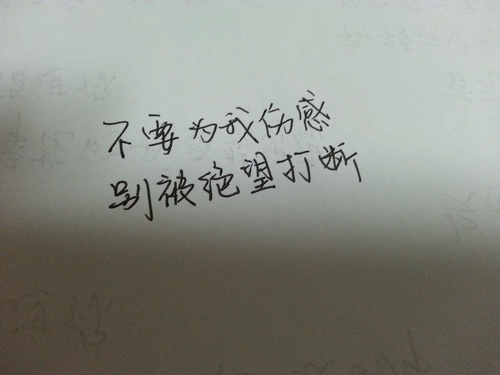 不要为我伤感
别被绝望打断